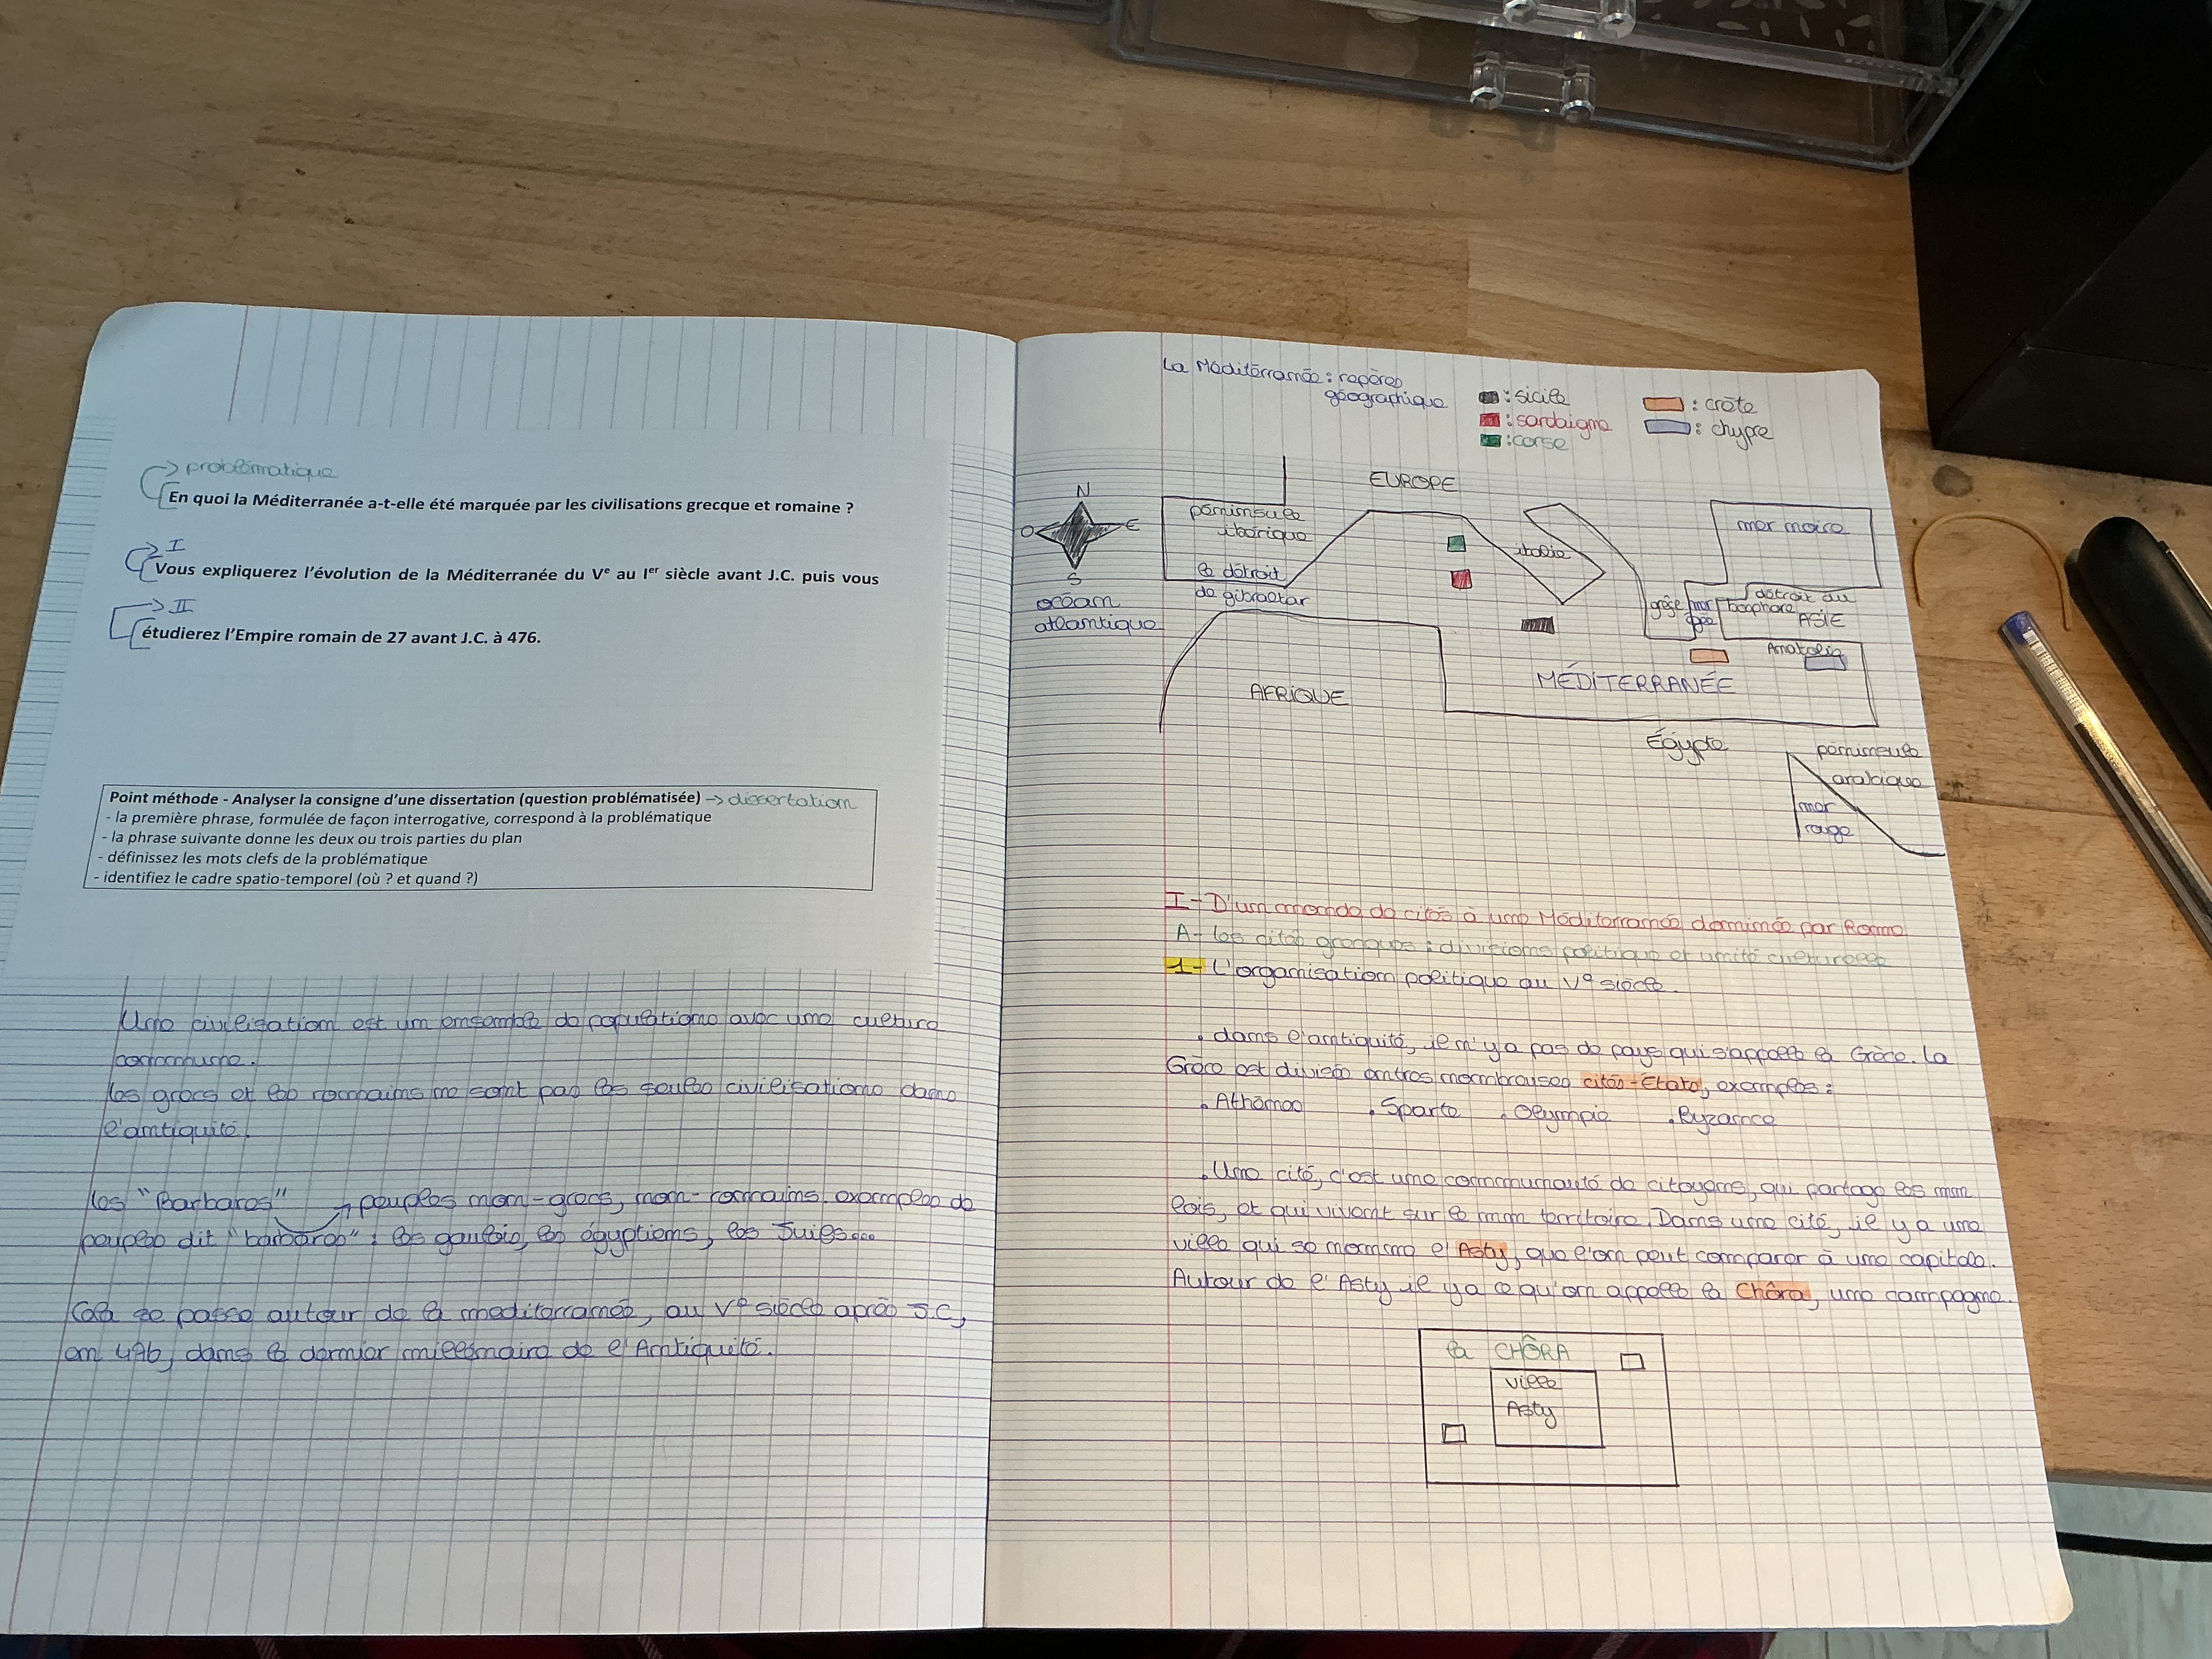 problématique
En quoi la Méditerranée a-t-elle été marquée par les civilisations grecque et romaine ?
I
Vous expliquerez l'évolution de la Méditerranée du Ve au Ier siècle avant J.C. puis vous
II
étudierez l'Empire romain de 27 avant J.C. à 476.
Point méthode - Analyser la consigne d'une dissertation (question problématisée) → dissertation
- la première phrase, formulée de façon interrogative, correspond à la problématique
- la phrase suivante donne les deux ou trois parties du plan
- définissez les mots clefs de la problématique
- identifiez le cadre spatio-temporel (où ? et quand ?)
Une civilisation est un ensemble de populations avec une culture
commune.
les grecs et les romains ne sont pas les seules civilisations dans
l'antiquité.
les "Barbares" → peuples non-grecs, non-romains. exemples de
peuples dit "barbares" : les gaulois, les égyptiens, les Juifs...
Cela se passe autour de la mediterranée, au Ve siècle après J.C,
en 476, dans le dernier millénaire de l'Antiquité.
La Méditérranée : repères
géographique
: sicile
: sardaigne
: corse
: crète
: chypre
N
O
E
S
EUROPE
péninsule
ibérique
le détroit
de gibraltar
océan
atlantique
italie
mer noire
grèce
mer
détroit du
bosphore
ASIE
Anatolie
MÉDITERRANÉE
AFRIQUE
Égypte
péninsule
arabique
mer
rouge
I- D'un monde de cités à une Méditerranée dominée par Rome
A- les cités grecques : divisions politique et unité culturelle
1- L'organisation politique au Ve siècle.
. dans l'antiquité, il n'y a pas de pays qui s'appelle la Grèce. la
Grèce est divisée entres nombreuses cités-États, exemples :
. Athènes . Sparte . Olympie . Byzance
. Une cité, c'est une communauté de citoyens, qui partage les mm
lois, et qui vivent sur le mm territoire. Dans une cité, il y a une
ville qui se nomme l'Asty, que l'on peut comparer à une capitale.
Autour de l'Asty il y a ce qu'on appelle la Chôra, une campagne.
la CHÔRA
ville
Asty